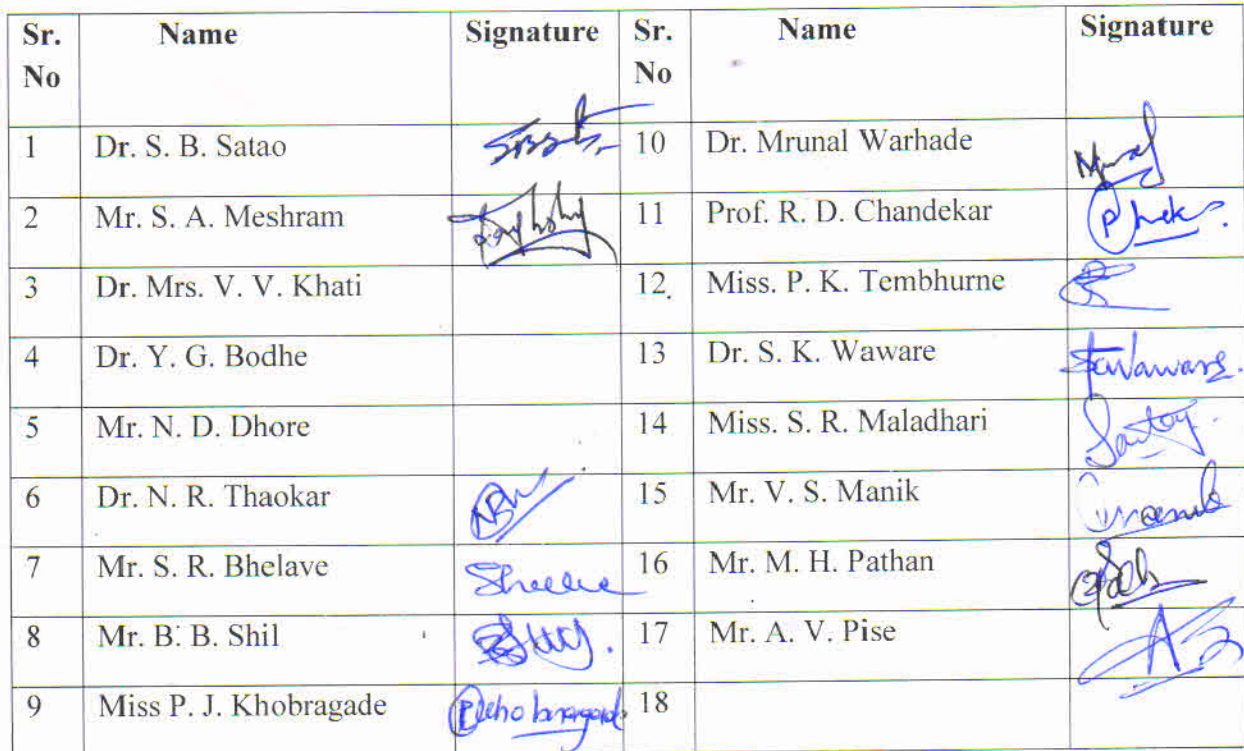 Sr. No Name Signature Sr. No Name Signature
1 Dr. S. B. Satao 10 Dr. Mrunal Warhade
2 Mr. S. A. Meshram 11 Prof. R. D. Chandekar
3 Dr. Mrs. V. V. Khati 12. Miss. P. K. Tembhurne
4 Dr. Y. G. Bodhe 13 Dr. S. K. Waware
5 Mr. N. D. Dhore 14 Miss. S. R. Maladhari
6 Dr. N. R. Thaokar 15 Mr. V. S. Manik
7 Mr. S. R. Bhelave 16 Mr. M. H. Pathan
8 Mr. B. B. Shil 17 Mr. A. V. Pise
9 Miss P. J. Khobragade 18